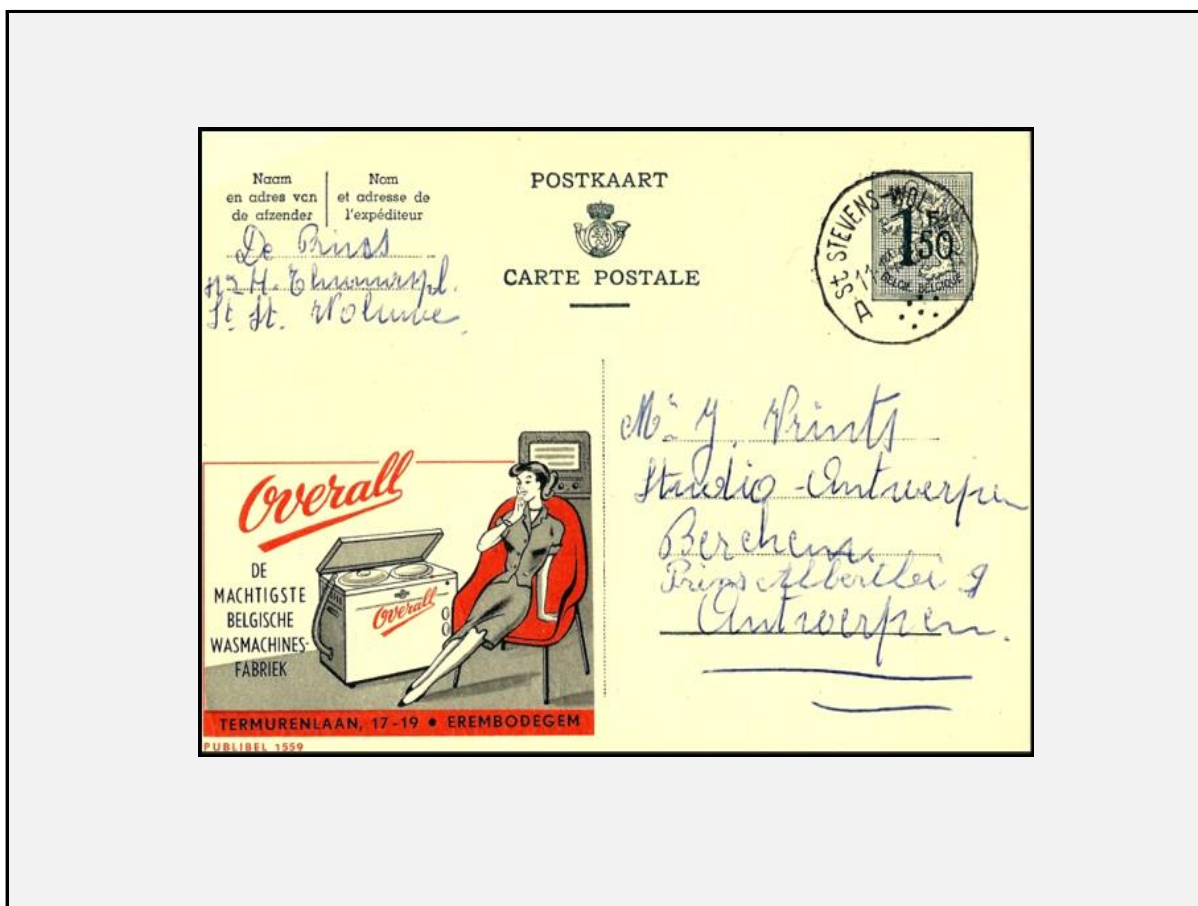 Naam
en adres van
de afzender
Nom
et adresse de
l'expéditeur
De
St. St. Woluwe
POSTKAART
CARTE POSTALE
St STEVENS-WOL
11
A
1F50
BELGIE BELGIQUE
Mr J. Vrints
Studio-Antwerpen
Berchem
Prins Albertlei 9
Antwerpen.
Overall
DE
MACHTIGSTE
BELGISCHE
WASMACHINES-
FABRIEK
Overall
TERMURENLAAN, 17-19 • EREMBODEGEM
PUBLIBEL 1559